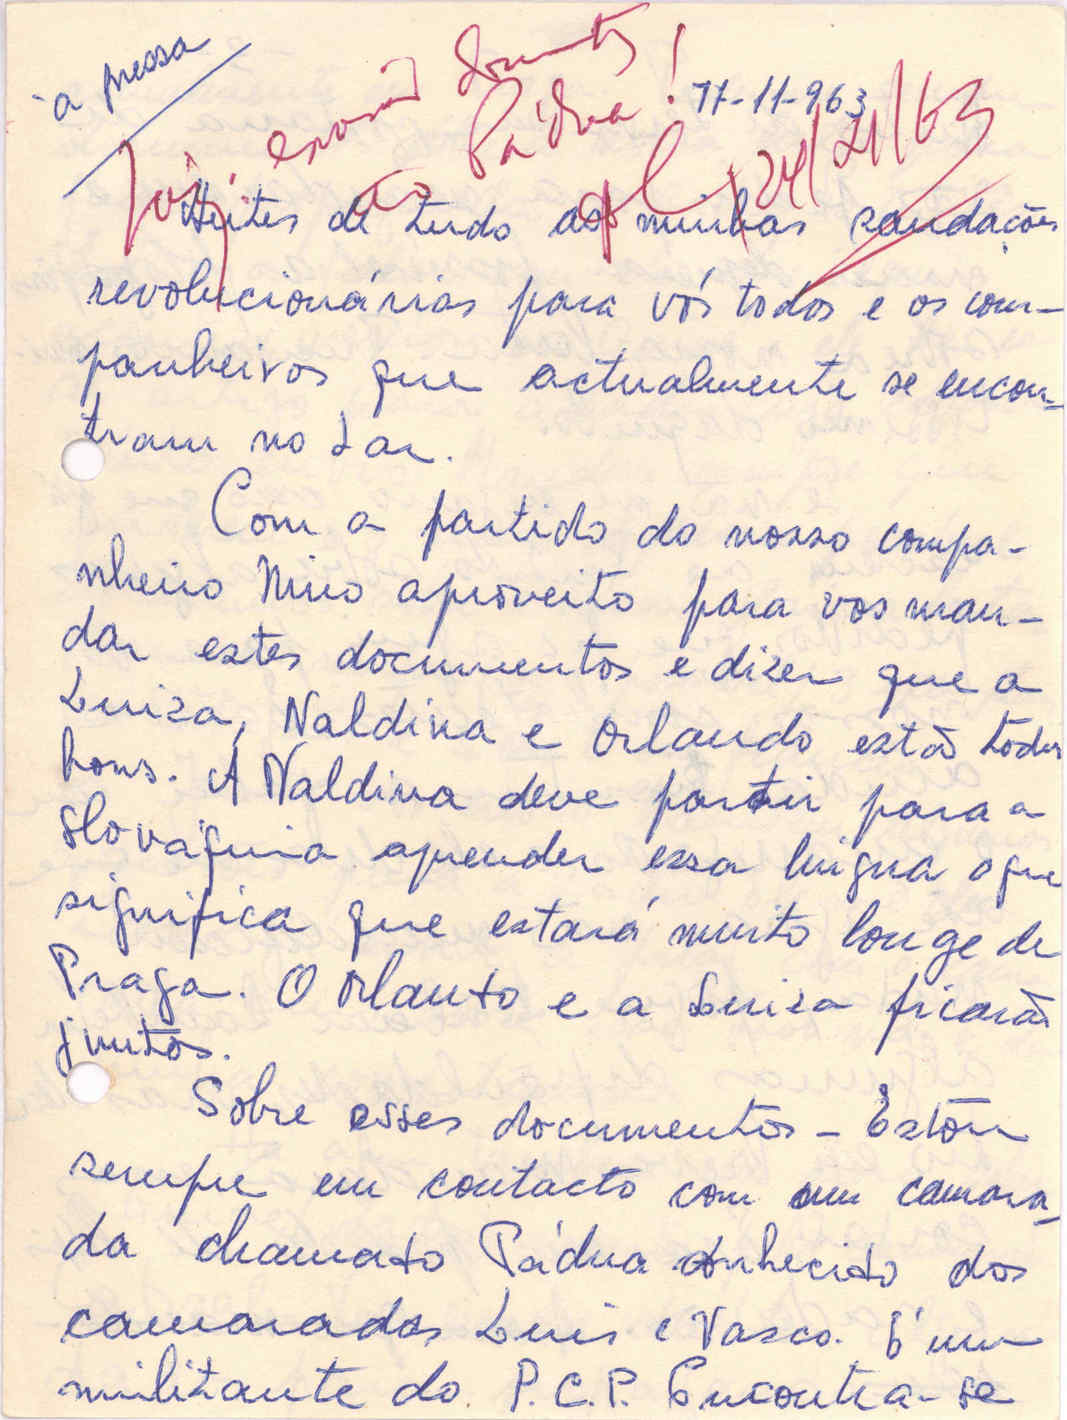 à pressa
Já enviei documentos
ao Pádua!
24/11/63
11-11-963
Antes de tudo as minhas saudações
revolucionárias para vós todos e os com-
panheiros que actualmente se encon-
tram no Lar.
Com a partida do nosso compa-
nheiro Miro aproveito para vos man-
dar estes documentos e dizer que a
Luiza, Naldina e Orlando estão todos
bons. A Naldina deve partir para a
Slováquia aprender essa língua o que
significa que estará muito longe de
Praga. O Orlanto e a Luiza ficarão
juntos.
Sobre esses documentos - Estou
sempre em contacto com um camara-
da chamato Pádua conhecido dos
camaradas Luis e Vasco. É um
militante do P.C.P. Encontra-se